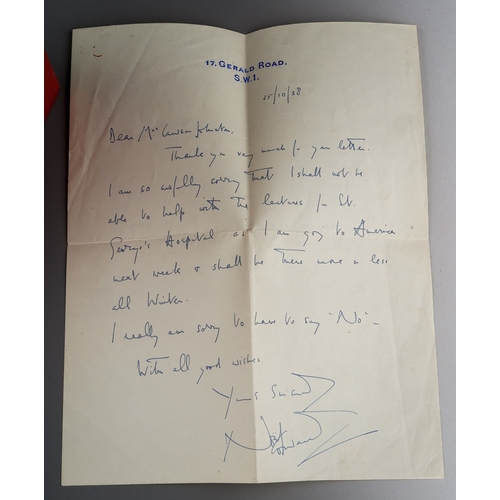 17. GERALD ROAD.
S.W.1.
25/10/38
Dear Mrs Johnston,
Thank you very much for your letter.
I am so awfully sorry that I shall not be
able to help with the lectures for St.
George's Hospital as I am going to America
next week & shall be there more or less
all Winter.
I really am sorry to have to say "No" –
With all good wishes
Yours Sincerely
Noël Coward